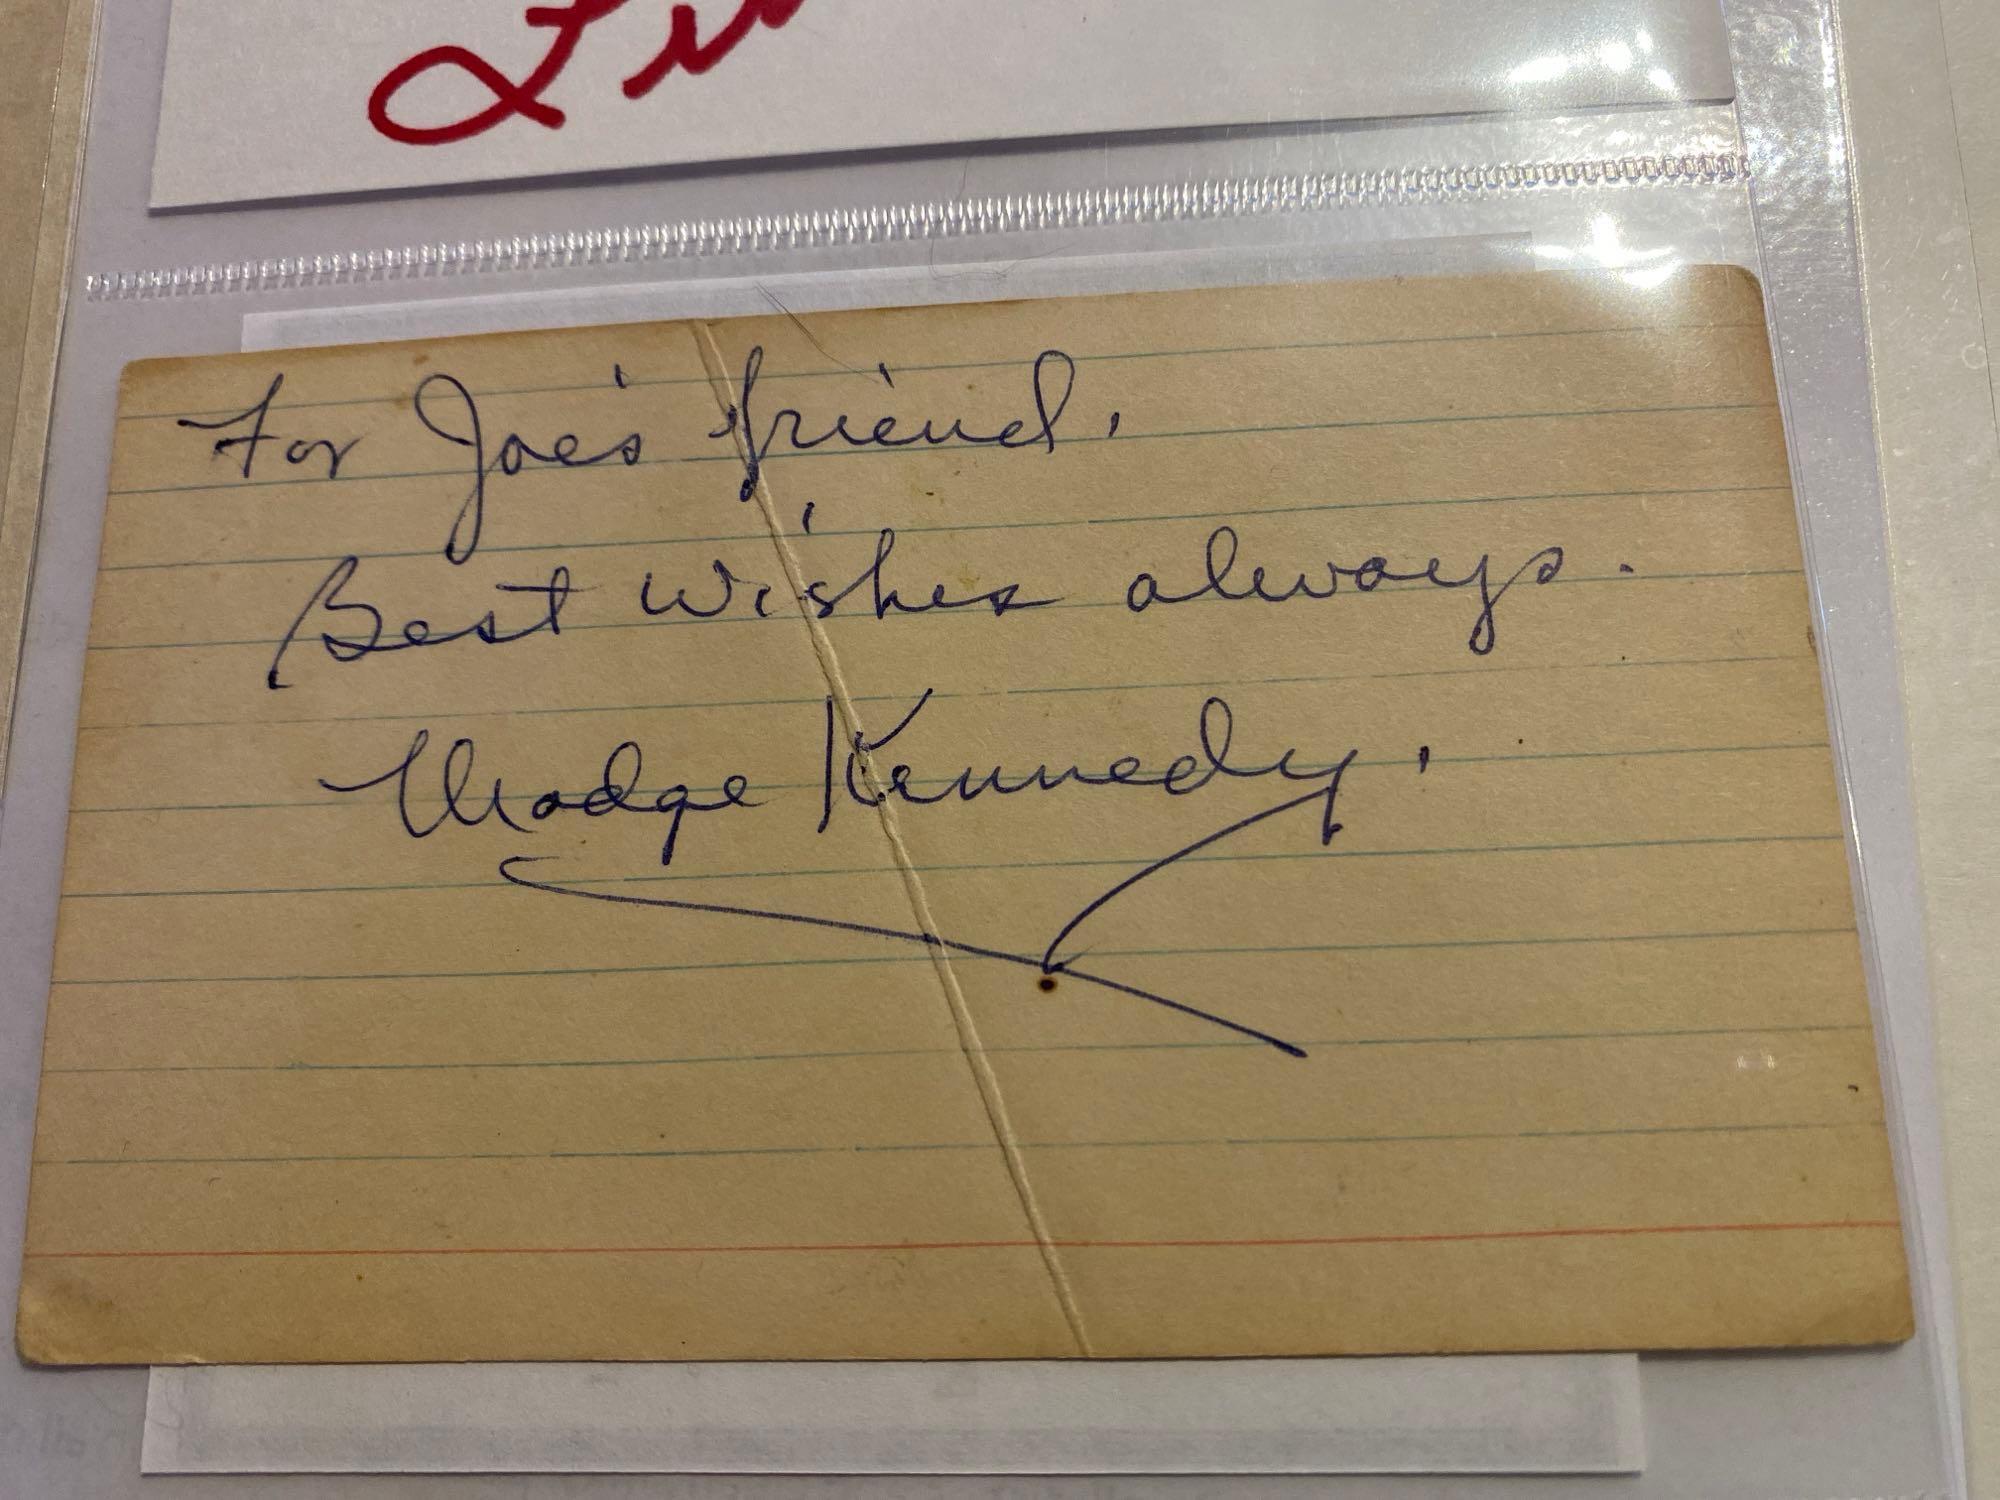 For Joe's friend.
Best Wishes always.
Madge Kennedy.